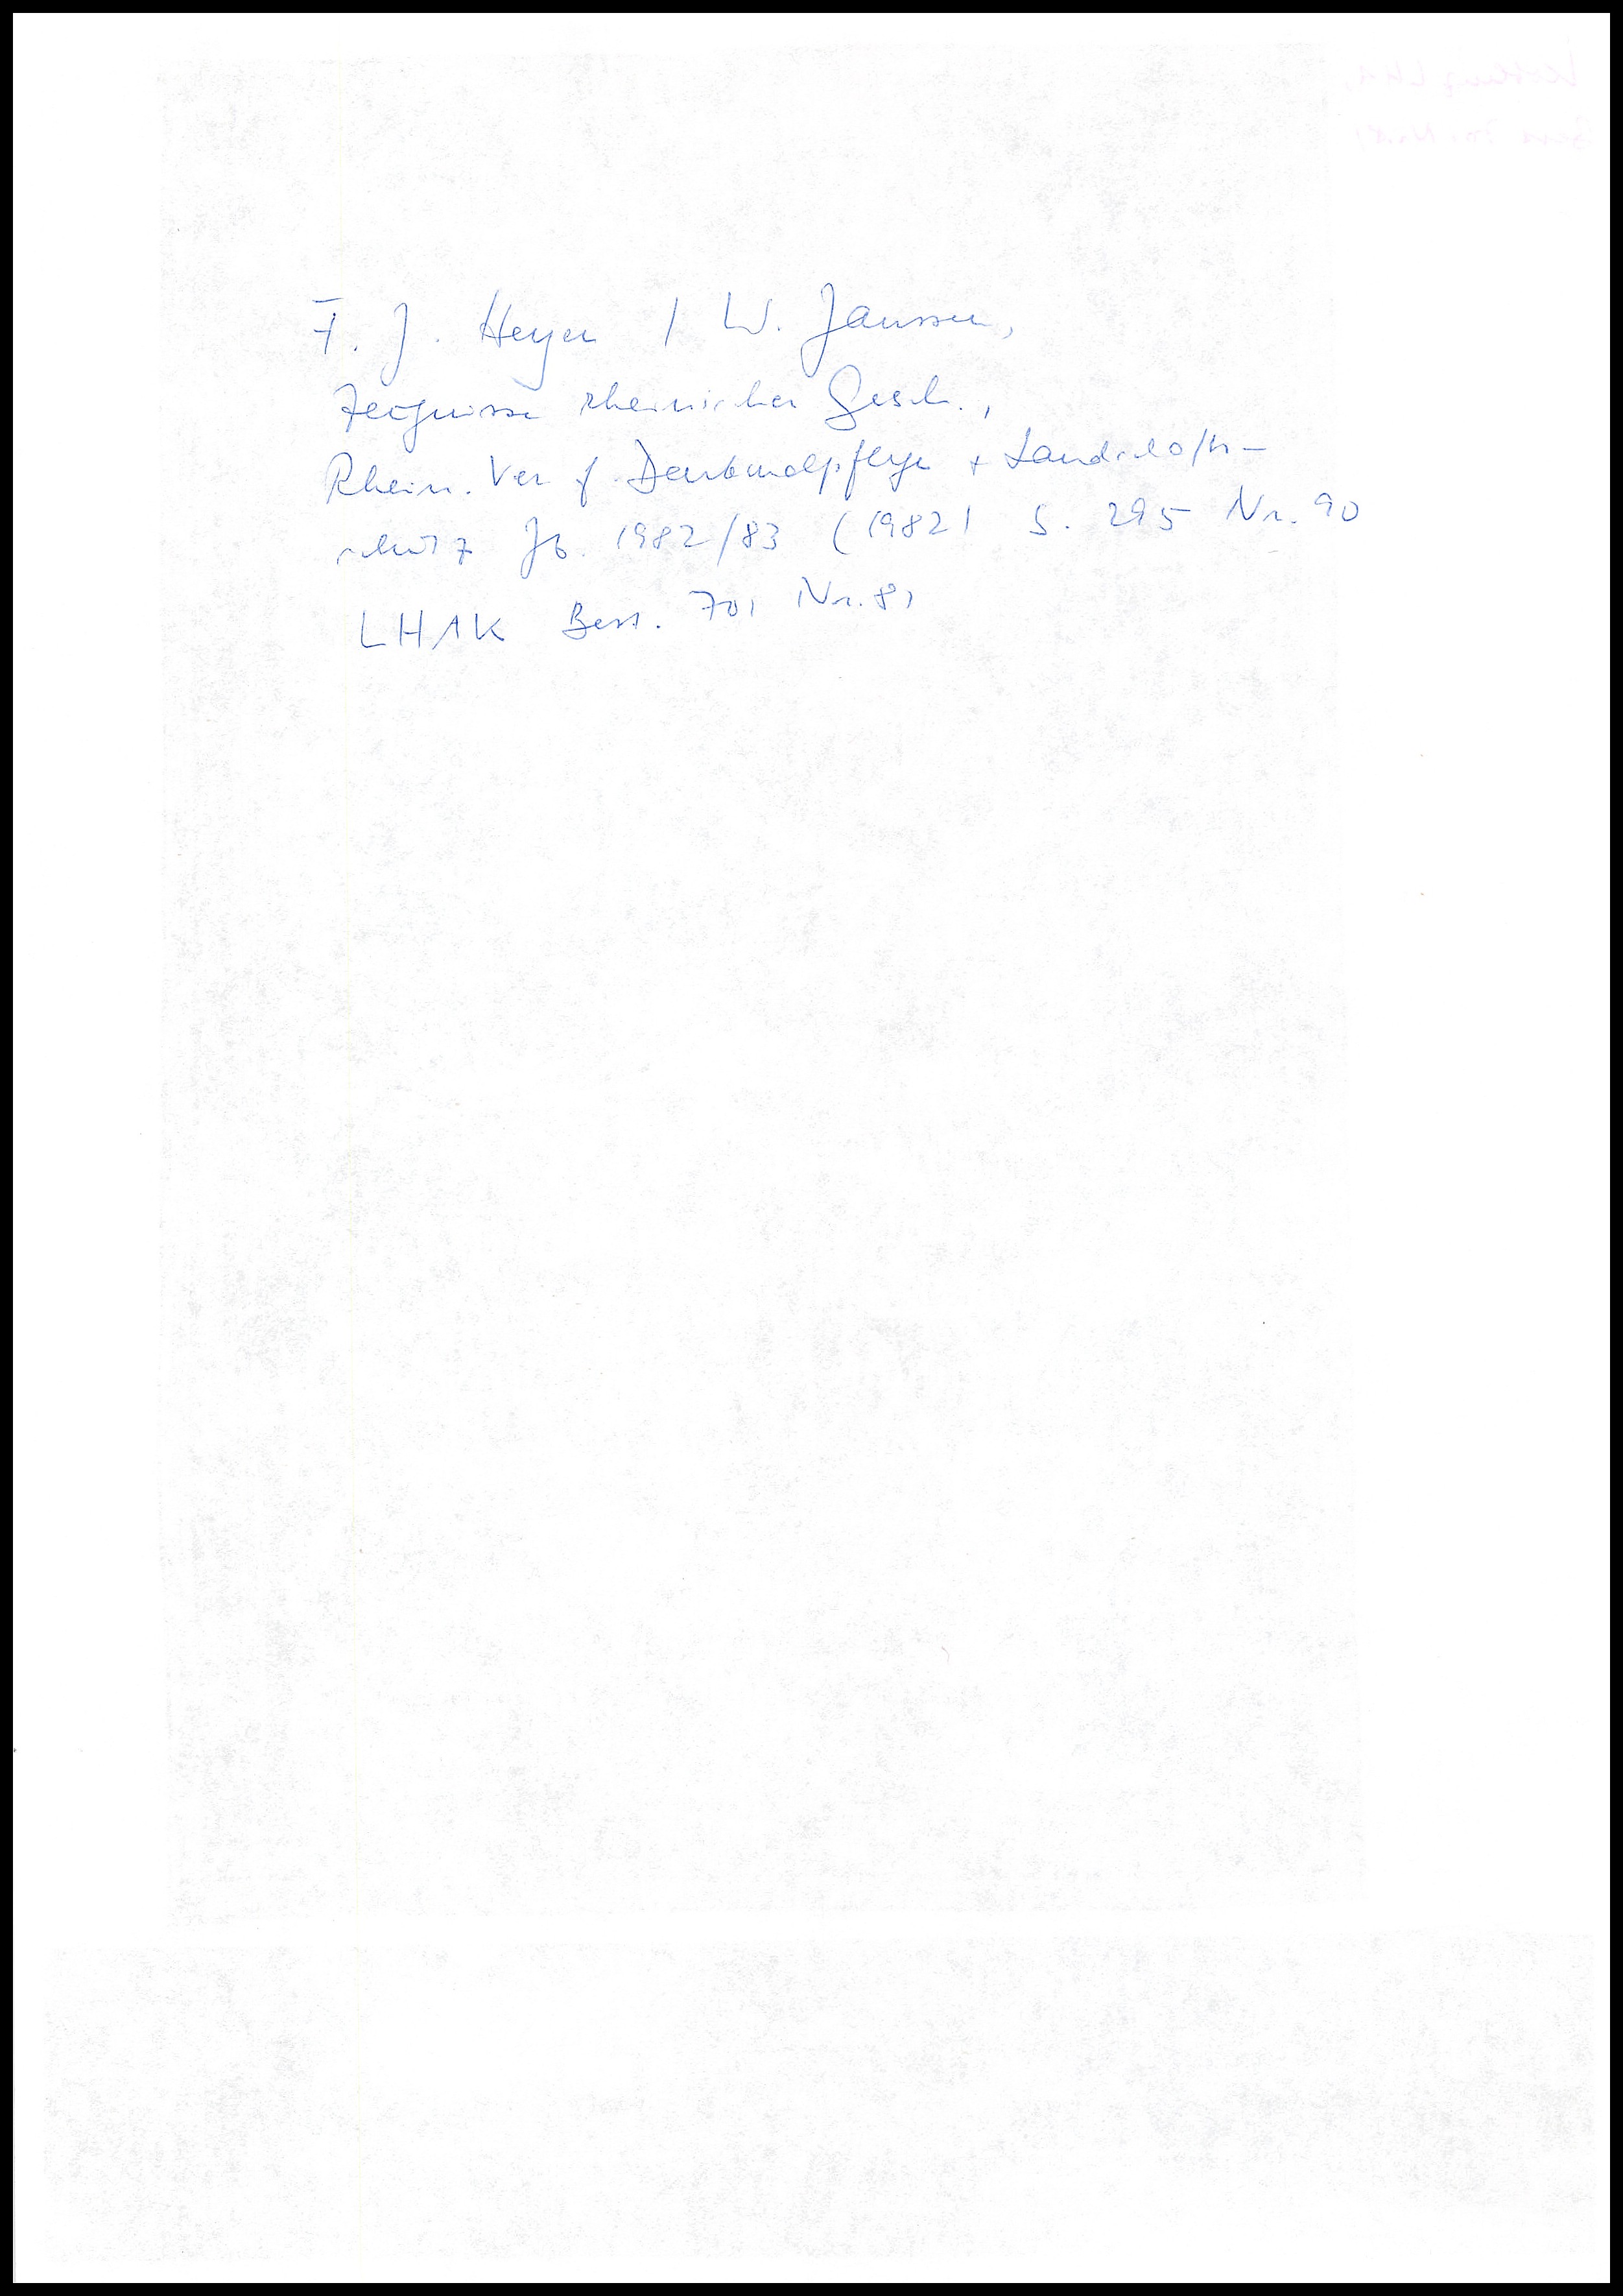 F. J. Heyen / W. Janssen,
Zeugnisse rheinischer Gesch.,
Rhein. Ver f. Denkmalpflege + Landschafts-
schutz Jb. 1982/83 (1982) S. 295 Nr. 90
LHAK Best. 701 Nr. 81